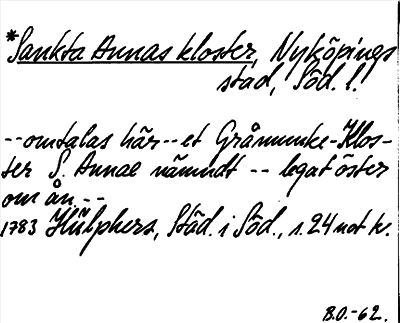 *Sankta Annas kloster, Nyköpings
stad, Söd. l.
--omtalas här--et Gråmunke-Klos-
ter S. Annae nämndt -- legat öster
om ån --
1783 Hülphers, Städ. i Söd., s. 24 not k.
B.O.-62.